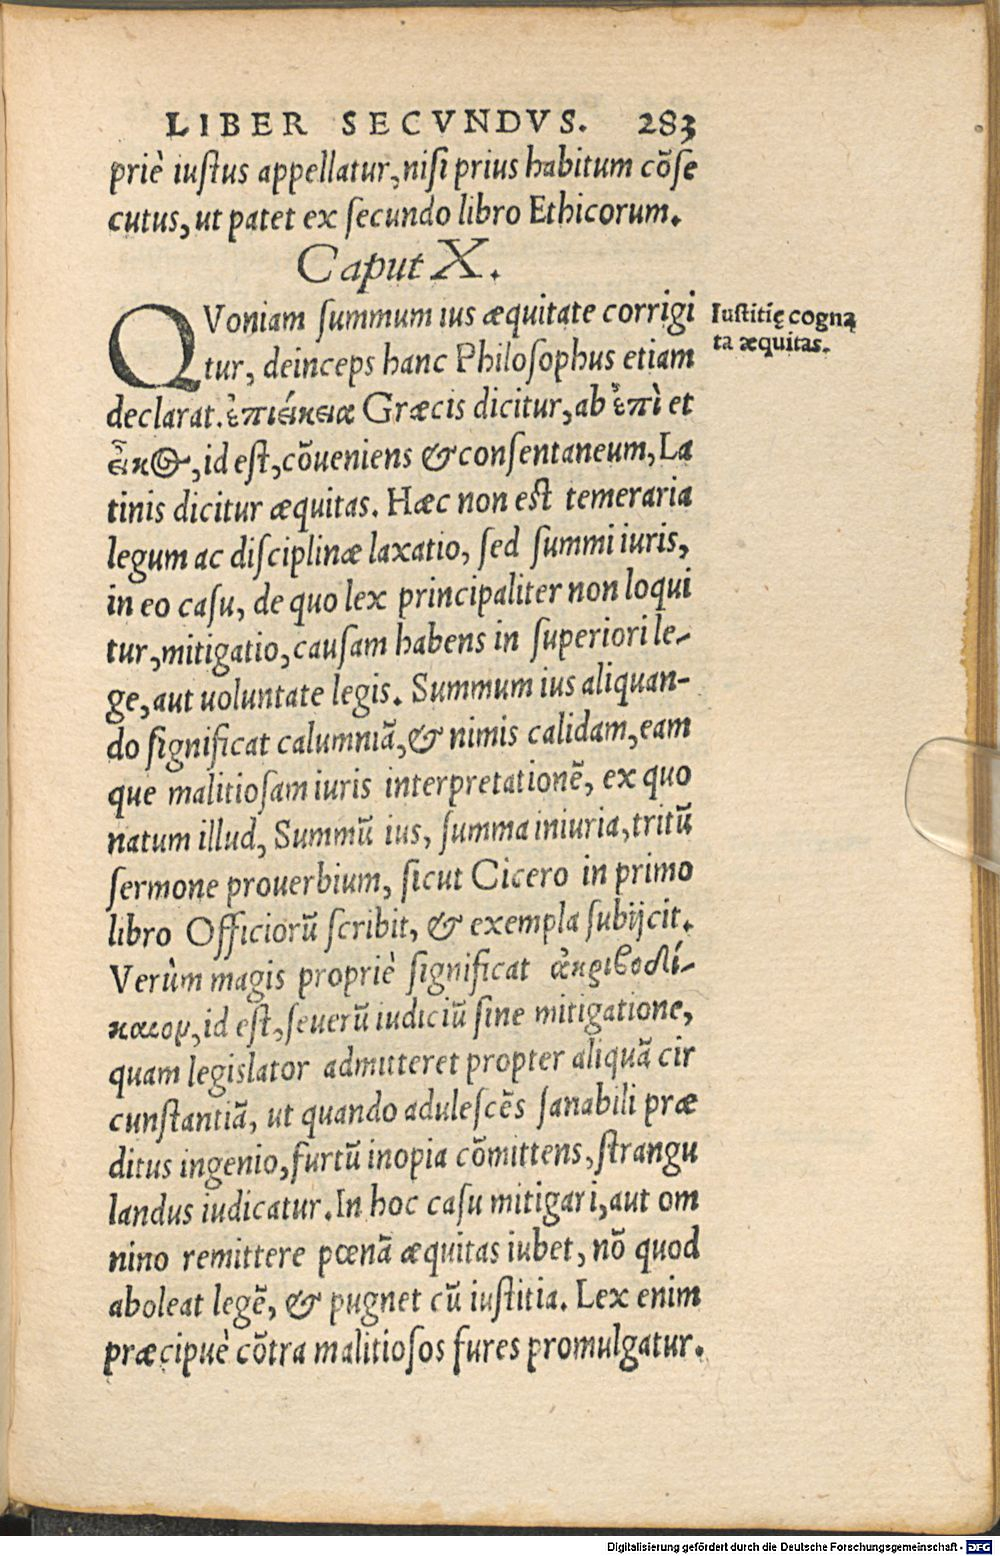 LIBER SECVNDVS. 283
priè iustus appellatur, nisi prius habitum cõse
cutus, ut patet ex secundo libro Ethicorum.
Caput X.
QVoniam summum ius æquitate corrigi
tur, deinceps hanc Philosophus etiam
declarat. ἐπιείκεια Græcis dicitur, ab ἐπὶ et
εἶκος, id est, cõueniens & consentaneum, La
tinis dicitur æquitas. Hæc non est temeraria
legum ac disciplinæ laxatio, sed summi iuris,
in eo casu, de quo lex principaliter non loqui
tur, mitigatio, causam habens in superiori le-
ge, aut uoluntate legis. Summum ius aliquan-
do significat calumniã, & nimis calidam, eam
que malitiosam iuris interpretationẽ, ex quo
natum illud, Summũ ius, summa iniuria, tritũ
sermone prouerbium, sicut Cicero in primo
libro Officiorũ scribit, & exempla subijcit.
Verùm magis propriè significat ἀκριβοδί-
καιον, id est, seuerũ iudiciũ sine mitigatione,
quam legislator admitteret propter aliquã cir
cunstantiã, ut quando adulescẽs sanabili præ
ditus ingenio, furtũ inopia cõmittens, strangu
landus iudicatur. In hoc casu mitigari, aut om
nino remittere pœnã æquitas iubet, nõ quod
aboleat legẽ, & pugnet cũ iustitia. Lex enim
præcipuè cõtra malitiosos fures promulgatur.
Iustitię cogna
ta æquitas.
Digitalisierung gefördert durch die Deutsche Forschungsgemeinschaft - DFG